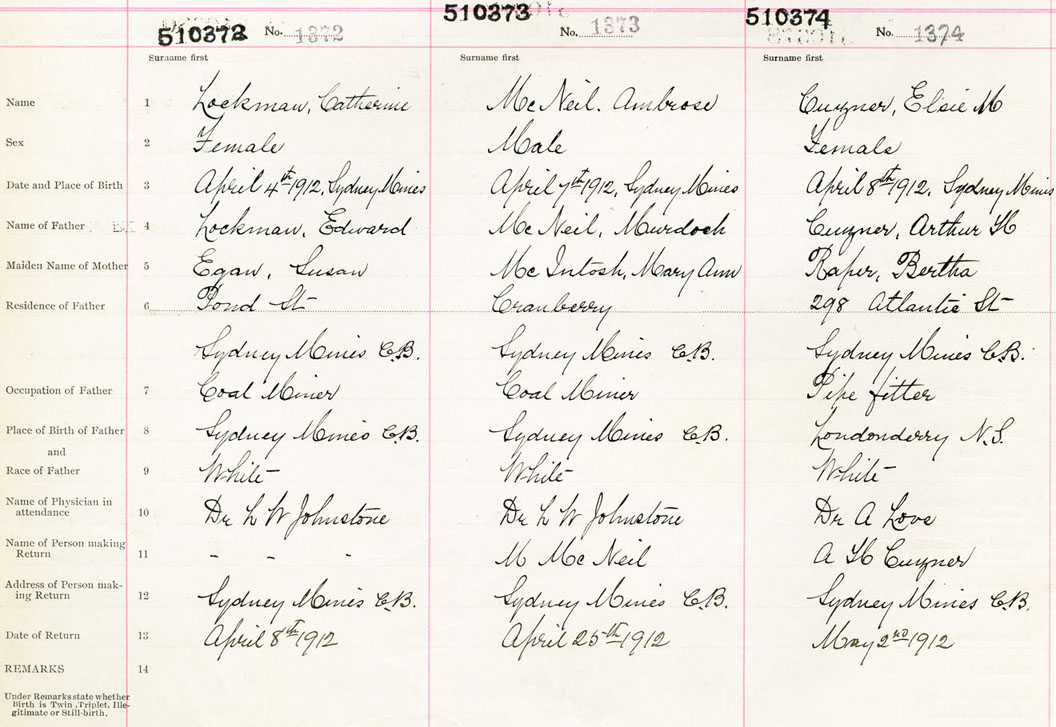 510372 No. 1372 510373 No. 1373 510374 No. 1374
Surname first Surname first Surname first
Name 1 Lockman, Catherine Mc Neil. Ambrose Cuzner, Elsie M
Sex 2 Female Male Female
Date and Place of Birth 3 April 4th 1912, Sydney Mines April 7th 1912, Sydney Mines April 8th 1912, Sydney Mines
Name of Father 4 Lockman, Edward Mc Neil, Murdoch Cuzner, Arthur H
Maiden Name of Mother 5 Egan, Susan Mc Intosh, Mary Ann Raper, Bertha
Residence of Father 6 Pond St Cranberry 298 Atlantic St
Sydney Mines C.B. Sydney Mines C.B. Sydney Mines C.B.
Occupation of Father 7 Coal Miner Coal Miner Pipe fitter
Place of Birth of Father 8 Sydney Mines C.B. Sydney Mines C.B. Londonderry N.S.
and
Race of Father 9 White White White
Name of Physician in
attendance 10 Dr L W Johnstone Dr L W Johnstone Dr A Love
Name of Person making
Return 11 - - - M Mc Neil A H Cuzner
Address of Person mak-
ing Return 12 Sydney Mines C.B. Sydney Mines C.B. Sydney Mines C.B.
Date of Return 13 April 8th 1912 April 25th 1912 May 2nd 1912
REMARKS 14
Under Remarks state whether
Birth is Twin, Triplet, Ille-
gitimate or Still-birth.